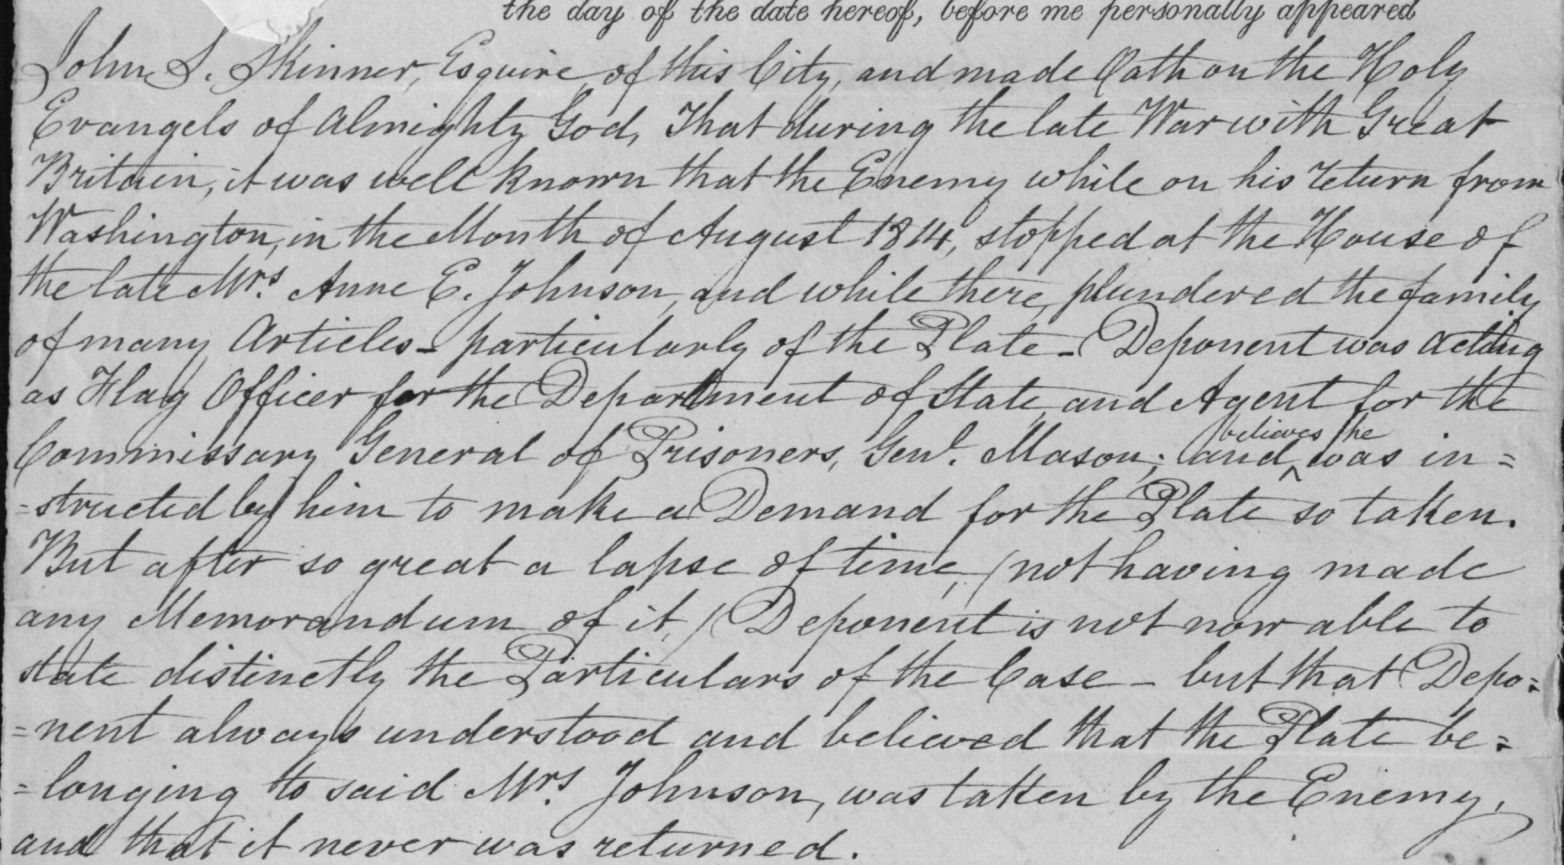 the day of the date hereof, before me personally appeared
John S. Skinner, Esquire, of this City, and made Oath on the Holy
Evangels of Almighty God, That during the late War with Great
Britain, it was well known that the Enemy while on his return from
Washington, in the Month of August 1814, stopped at the House of
the late Mrs. Anne E. Johnson, and while there, plundered the family
of many Articles - particularly of the Plate - Deponent was acting
as Flag Officer for the Department of State, and Agent for the
Commissary General of Prisoners, Genl. Mason; and ^ believes he was in=
=structed by him to make a Demand for the Plate so taken.
But after so great a lapse of time, (not having made
any Memorandum of it,) Deponent is not now able to
state distinctly the Particulars of the Case - but that Depo=
=nent always understood and believed that the Plate be=
=longing to said Mrs. Johnson, was taken by the Enemy,
and that it never was returned.